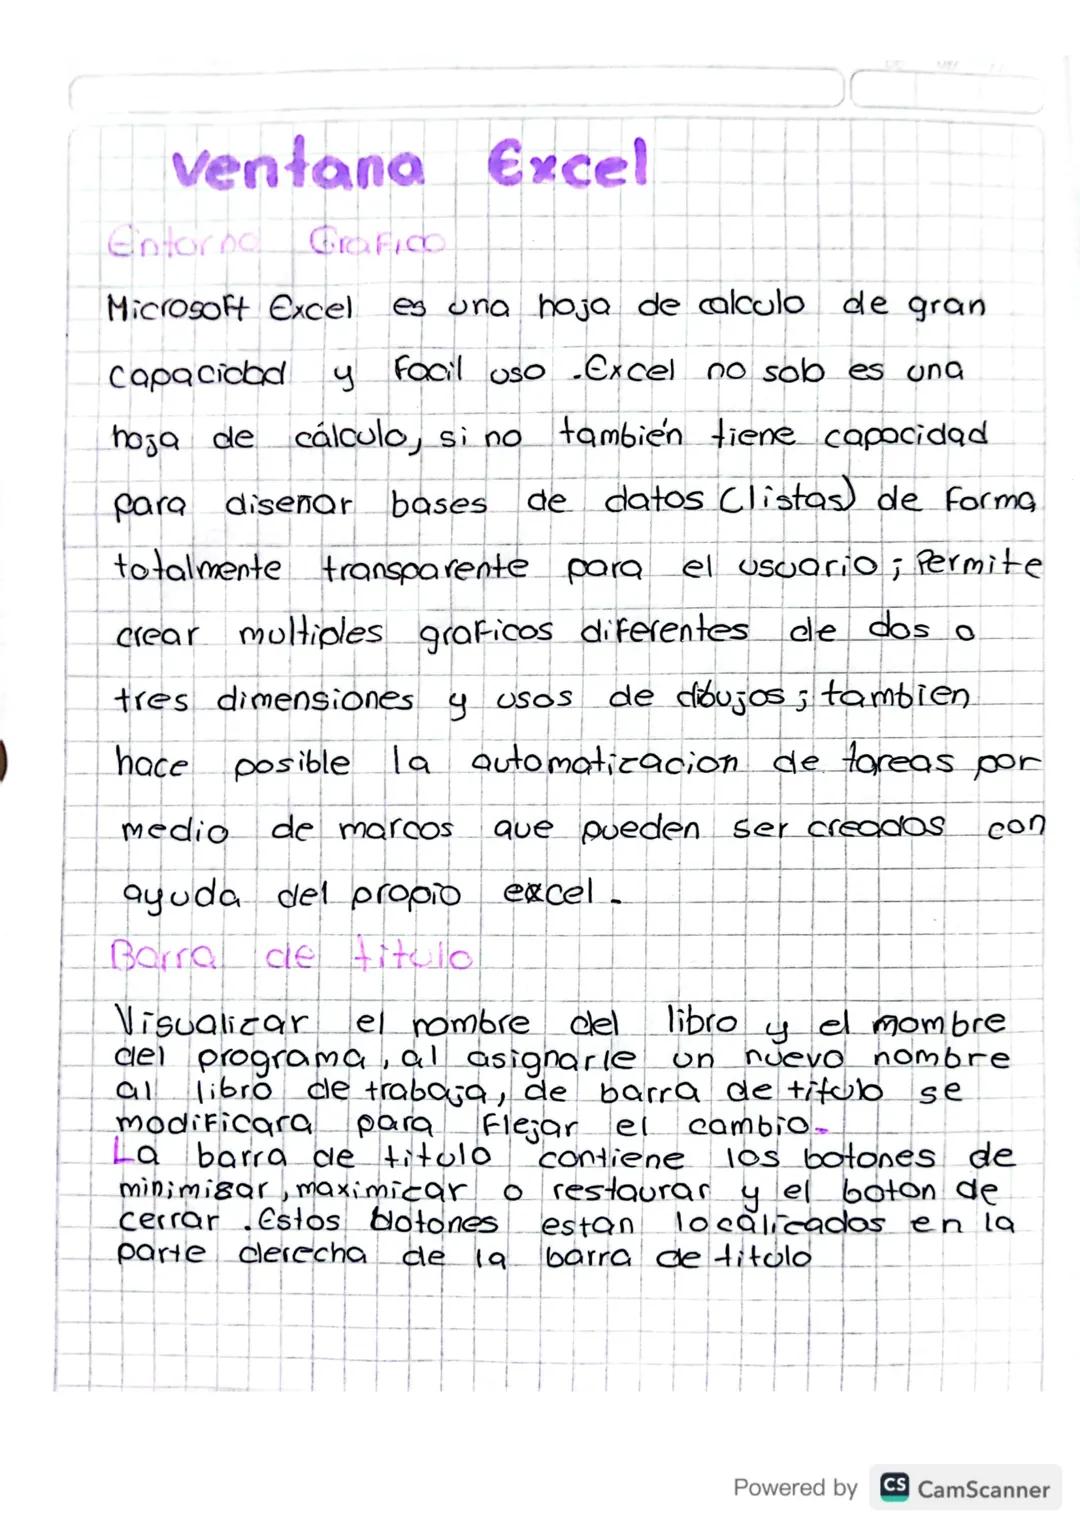 ventana Excel
Entorno Grafico
Microsoft Excel es una hoja de calculo de gran
capacidad y Facil uso . Excel no solo es una
hoja de cálculo, si no también tiene capacidad
para diseñar bases de datos (listas) de Forma
totalmente transparente para el usuario ; Permite
crear multiples graficos diferentes de dos o
tres dimensiones y usos de dibujos ; tambien
hace posible la automatizacion de tareas por
medio de marcos que pueden ser creados con
ayuda del propio excel .
Barra de titulo
Visualizar el nombre del libro y el mombre
del programa , al asignarle un nuevo nombre
al libro de trabaja , de barra de titulo se
modificara para Flejar el cambio .
La barra de titulo contiene los botones de
minimisar , maximizar o restaurar y el boton de
cerrar . Estos botones estan localizados en la
parte derecha de la barra de titulo
Powered by CS CamScanner